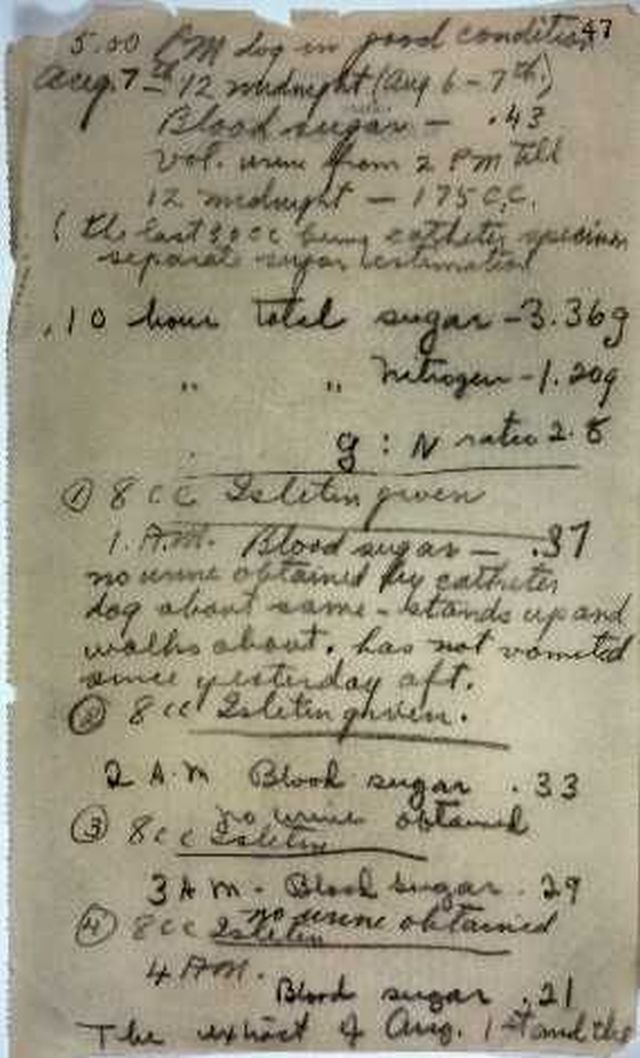 47
5.00 PM Dog in good condition
Aug. 7th 12 midnight (Aug 6 - 7th.)
Blood sugar - .43
Vol. urine from 2 PM till
12 midnight - 175 C.C.
( the last 30 cc being catheter specimen
separate sugar estimation
10 hour total sugar - 3.36g
" " Nitrogen - 1.20g
g : N ratio 2.8
① 8 cc Isletin given
1. A.M. Blood sugar - .37
no urine obtained by catheter
dog about same - stands up and
walks about. has not vomited
since yesterday aft.
② 8 cc Isletin given.
2 A.M Blood sugar .33
no urine obtained
③ 8 cc Isletin
3 A M - Blood sugar .29
no urine obtained
④ 8 cc Isletin
4 AM.
Blood sugar .21
The extract of Aug. 1st and the